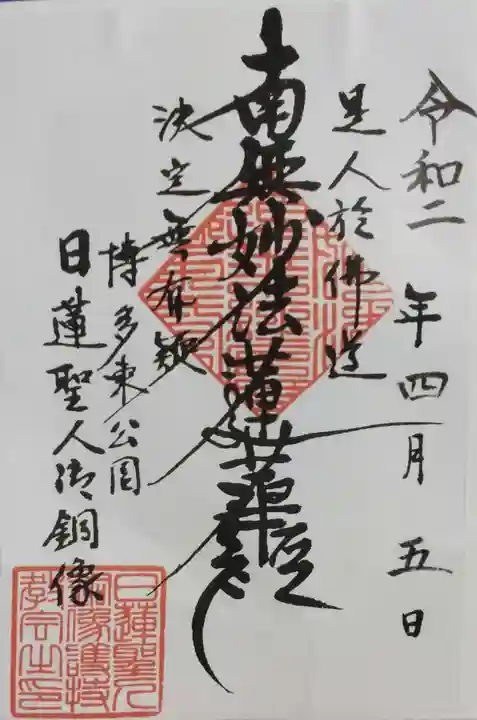 令和二年四月五日
是人於佛道
南無妙法蓮華経
決定無有疑
博多東公園
日蓮聖人御銅像
日蓮聖人
銅像護持
教会之印